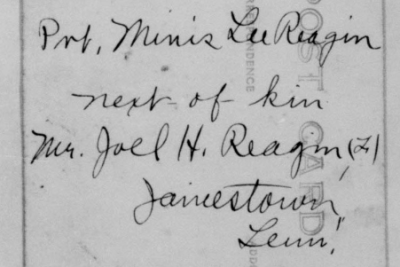 Pvt. Minis Lee Reagin
next of kin
Mr. Joel H. Reagin, (F)
Jamestown,
Tenn.
POST CARD